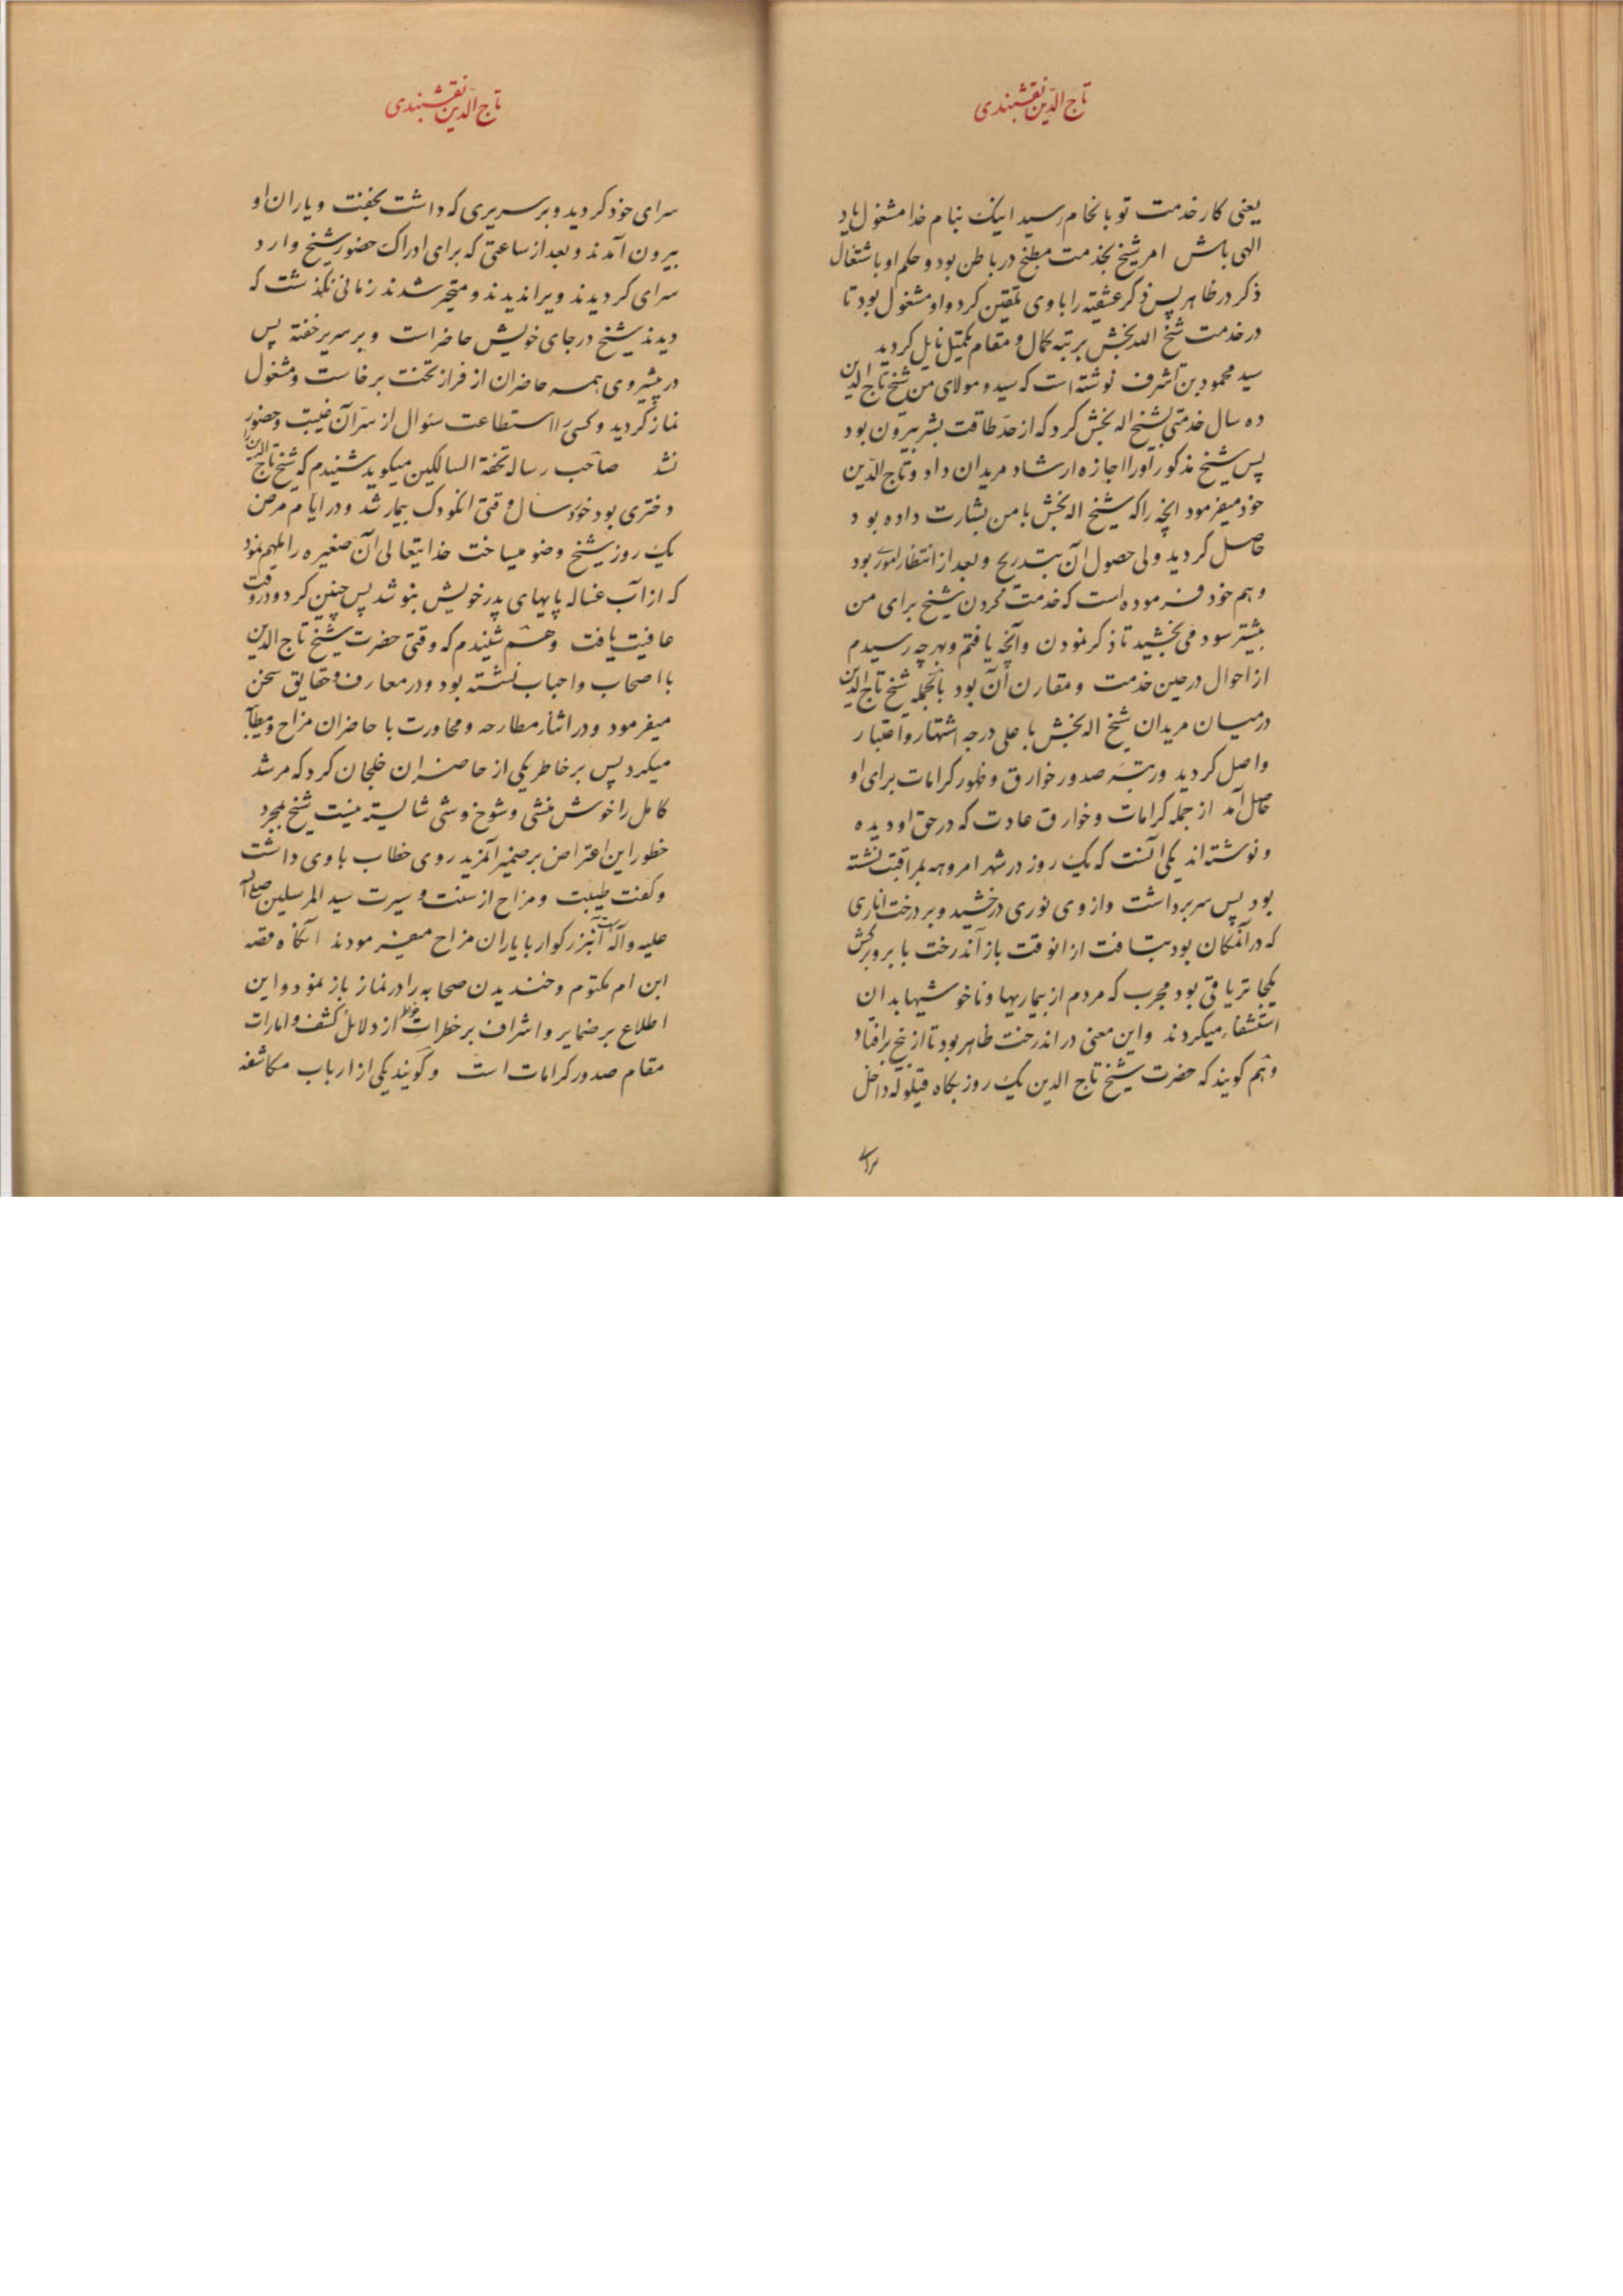 تاج الدّین نقشبندی
یعنی کار خدمت تو بانجام رسید اینک بنام خدا مشغول باد
الهی باش امر شیخ بخدمت مطبخ در باطن بود و حکم او باشتغال
ذکر در ظاهر پس ذکر عشقیه را با وی تلقین کرد و او مشغول بود تا
در خدمت شیخ الله بخش برتبه کمال و مقام تکمیل نایل گردید
سید محمود بن اشرف نوشته است که سید و مولای من شیخ تاج الدین
ده سال خدمتی بشیخ اله بخش کرد که از حد طاقت بشر بیرون بود
پس شیخ مذکور او را اجازه ارشاد مریدان داد و تاج الدّین
خود میفرمود انچه را که شیخ اله بخش با من بشارت داده بود
حاصل گردید ولی حصول آن بتدریج و بعد از انتظار امور بود
و هم خود فرموده است که خدمت کردن شیخ برای من
بیشتر سود می بخشید تا ذکر نمودن و آنچه یافتم و بهر چه رسیدم
از احوال در حین خدمت و مقارن آن بود بالجمله شیخ تاج الدین
در میان مریدان شیخ اله بخش باعلی درجه اشتهار و اعتبار
واصل گردید و رتبه صدور خوارق و ظهور کرامات برای او
حاصل آمد از جمله کرامات و خوارق عادت که در حق او دیده
و نوشته اند یکی آنست که یک روز در شهر امروهه بمراقبت نشسته
بود پس سر برداشت و از وی نوری درخشید و بر درخت اناری
که در آنمکان بود بتافت از انوقت باز آندرخت با بر و برگش
یکجا تریاقی بود مجرب که مردم از بیماریها و ناخوشیها بدان
استشفاء میکردند و این معنی در اندرخت ظاهر بود تا از بیخ برافتاد
و هم گویند که حضرت شیخ تاج الدین یک روز بگاه قیلوله داخل
سرای
تاج الدّین نقشبندی
سرای خود گردید و بر سریری که داشت بخفت و یاران او
بیرون آمدند و بعد از ساعتی که برای ادراک حضور شیخ وارد
سرای گردیدند ویرا ندیدند و متحیر شدند زمانی نگذشت که
دیدند شیخ در جای خویش حاضر است و بر سریر خفته پس
در پیشروی همه حاضران از فراز تخت برخاست و مشغول
نماز گردید و کسی را استطاعت سئوال از سرّ آن غیبت و حضور
نشد صاحب رساله تحفة السالکین میگوید شنیدم که شیخ تاج الدین را
دختری بود خورد سال وقتی انکودک بیمار شد و در ایام مرض
یک روز شیخ وضو میساخت خدایتعالی آن صغیره را ملهم نمود
که از آب غساله پایهای پدر خویش بنوشد پس چنین کرد و در وقت
عافیت یافت و هم شنیدم که وقتی حضرت شیخ تاج الدین
با اصحاب و احباب نشسته بود و در معارف و حقایق سخن
میفرمود و در اثناء مطارحه و محاورت با حاضران مزاح و مطایبه
میکرد پس بر خاطر یکی از حاضران خلجان کرد که مرشد
کامل را خوش منشی و شوخ وشی شایسته نیست شیخ بمجرد
خطور این اعتراض بر ضمیر آنمرید روی خطاب با وی داشت
و گفت طیبت و مزاح از سنت و سیرت سید المرسلین صلی الله
علیه و آله است آنبزرگوار با یاران مزاح میفرمودند انگاه قصه
ابن ام مکتوم و خندیدن صحابه را در نماز باز نمود و این
اطلاع بر ضمایر و اشراف بر خطرات خواطر از دلایل کشف و امارات
مقام صدور کرامات است و گویند یکی از ارباب مکاشفه